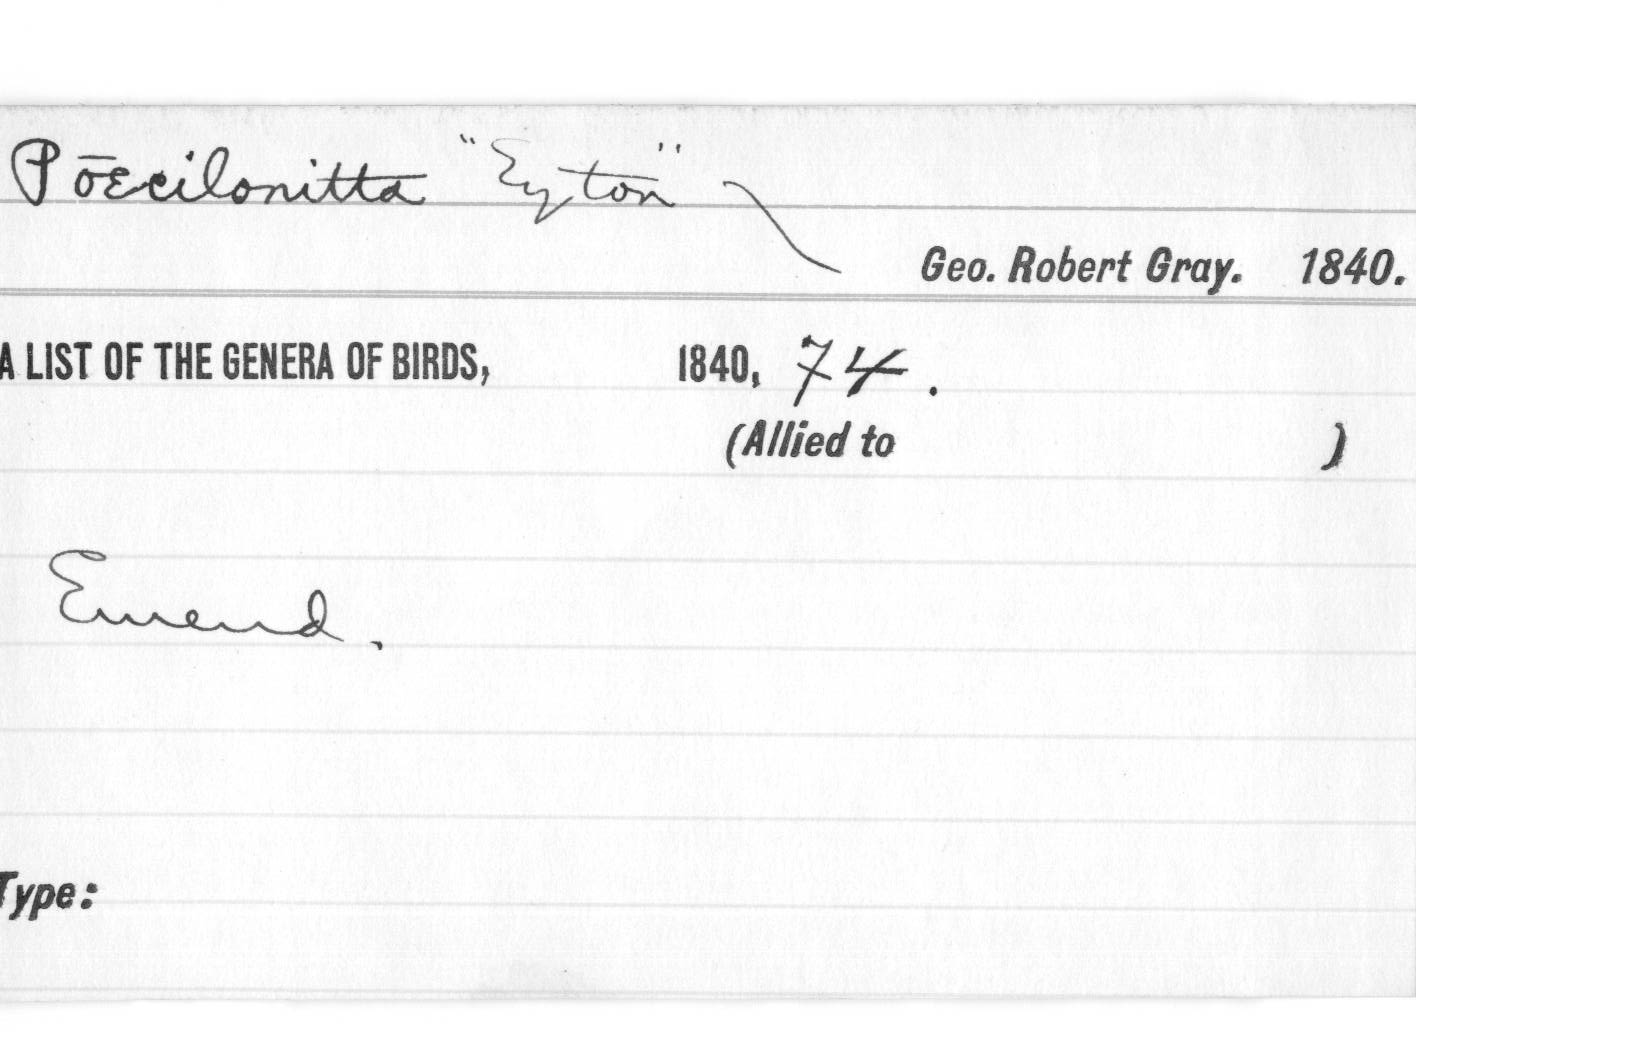 Pōecilonitta "Eyton"
Geo. Robert Gray. 1840.
A LIST OF THE GENERA OF BIRDS, 1840, 74.
(Allied to )
Emend.
Type: